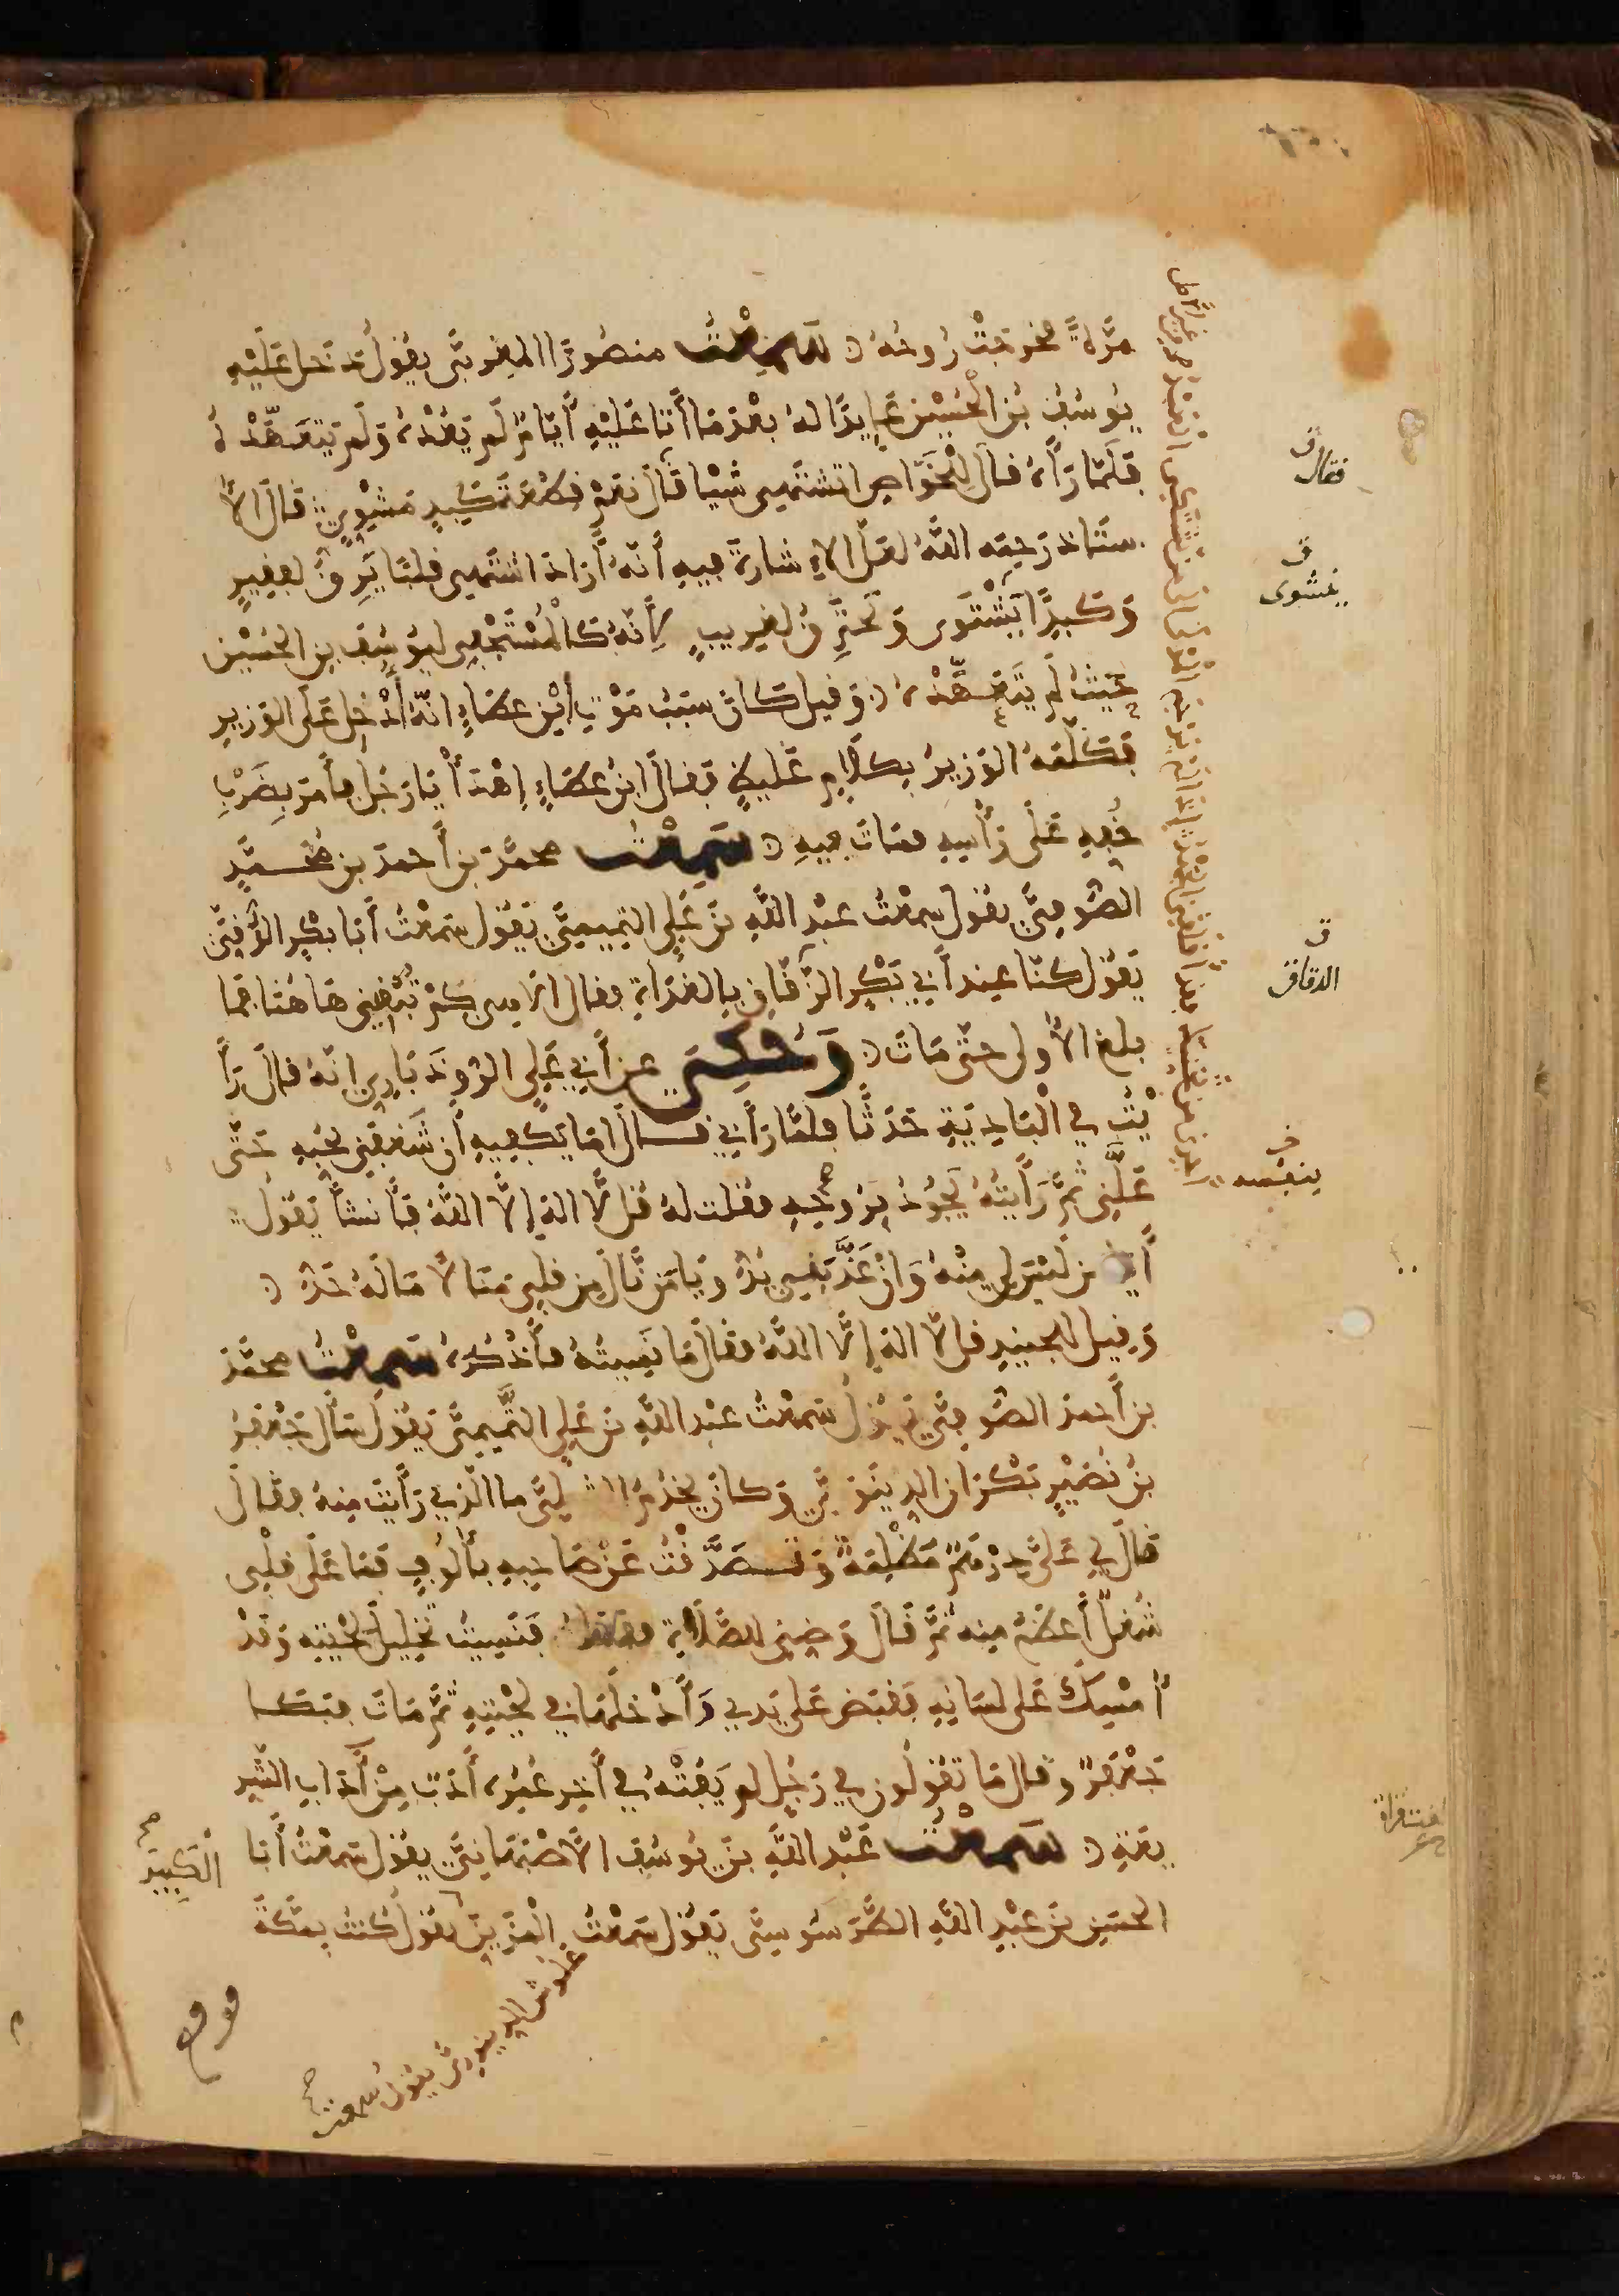 مَرَّةً فخرجَتْ رُوحُهُ سَمِعْتُ منصُورًا المغربيَّ يقُولُ دَخل عَلَيْهِ
يُوسُفُ بْنُ الْحُسَيْنِ عَايِدًا لهُ بعْدَمَا أَتَا عَلَيْهِ أَيَّامٌ لَم يَعُدْهُ وَلَم يَتعَهَّدْهُ
فَلَمَّا رَأَاهُ قالَ لِلْخَوَّاصِ اتشتَهِي شَيْا قَالَ نعَمْ قِطْعَةَ كَبِدٍ مَشْوِيٍّ قَالَ الأُ
ستَاذ رَحِمَه اللهُ لعَلّ الاِشارةَ فيهِ أَنّهُ أَرَادَ اشتَهِي قلبًا يَرِقُّ لفقِيرٍ
وَكبِدًا يَشْتَوَى وَتَحْتَرِقُ لغَرِيبٍ لِأَنّهُ كَالْمُسْتَجْفِي ليُوسُفَ بنِ الحُسَيْنِ
حَيْثُ لَم يَتَعَهَّدْهُ وَقيل كَانَ سَبَبُ مَوْتِ ابْنِ عطَاءٍ انّهُ أُدْخِل عَلَى الوَزير
فَكَلَّمَهُ الوَزيرُ بِكَلَامٍ غَليظٍ فَقالَ ابْنُ عطَاءٍ اِهْدَأْ يَا رَجُل فأَمَرَ بِضَرْبِ
خُفِّهِ عَلَى رَأْسِهِ فمَاتَ فِيهِ سَمِعْتُ محمَّدَ بنَ أَحمدَ بنِ مُحَمَّدٍ
الصُّوفِيَّ يقُول سمعْتُ عبْدَ اللَّهِ بْنَ عَلِي التَمِيمِيَّ يَقُول سَمعْتُ أَبَا بكْرٍ الدُّقِّيَّ
يَقُول كنّا عِند أَبِي بَكْرٍ الزَّقَّاقِ بِالغَدَاةِ فقال الاهِي كَمْ تُبْقِينِي هَا هُنَا فَمَا
بلغ الأُولى حتَّى مَاتَ وَحُكِيَ عن أَبِي عَلِي الرُّوذَبَارِيِّ انّهُ قالَ رَأَ
يْتُ في الْبَادِيَةِ حَدَثًا فلمَّا رَأَانِي قَالَ امَا يَكْفِيهِ أَن شَغفَنِي بحُبِّهِ حَتَّى
عَلَّنِي ثُمَّ رَأَيتُهُ يَجُودُ بِرُوحِهِ فقلت لهُ قُل لَّا الهَ إلَّا اللهُ فَأَنشأَ يَقُولُ
أَيَا مَن لَيْسَ لِي مِنْهُ وَإِنْ عَذَّبَنِي بُدٌّ وَيَا مَن نَّالَ مِن قَلبِي مَنَالًا مَا لَهُ حَدٌّ
وَقِيل للجنيدِ قل لَّا الهَ إلَّا اللَّهُ فقَالَ مَا نَسِيتُهُ فأَذْكُرَهُ سَمِعْتُ محمَّدَ
بنَ أَحمدَ الصُّوفِيَّ يَقُولُ سَمعْتُ عبْدَ اللَّهِ بْنَ عَلِي التَّمِيمِيَّ يَقُول سَأَلَ جَعْفَرُ
بْنُ نُصَيْرٍ بَكْرَانَ الدِّينَوَرِيَّ وَكانَ يخْدُمُ الشِّبْلِيَّ ما الَّذِي رَأَيتَ مِنهُ فقَالَ
قالَ لِي عَلَيَّ دِرْهَمٌ مَظْلَمَةً وَتَصَدَّقْتُ عَنْ صَاحِبِهِ بِأُلُوفٍ فَمَا عَلَى قلْبِي
شُغلٌ أَعظَمُ مِنه ثمَّ قَالَ وَضِّينِي للصَّلَاةِ ففعلتُ فَنَسِيتُ تَخْلِيلَ لِحْيَتِهِ وَقَدْ
أُمْسِكَ عَلَى لسَانِهِ فقبَضَ عَلَى يَدِي وَأَدْخَلَهَا في لِحْيَتِهِ ثُمَّ مَاتَ فبَكَا
جَعْفَرٌ وقَال مَا تقُولُون فِي رَجُلٍ لم يَفُتْهُ في أَخِرِ عُمْرِهِ أَدَبٌ مِنْ أَدَابِ الشَّرِ
يعَةِ سَمِعْتُ عَبْدَ اللَّهِ بْنَ يُوسُفَ الأَصْبَهَانِيَّ يقُول سَمعْتُ أَبَا
الحسَينِ بْنَ عبْدِ اللَّهِ الطَّرَسُوسِيَّ يَقُول سَمعْتُ المُزَيِّنَ يقُولُ كُنتُ بمَكَّةَ
فقال ق
ق يشوى
ق الدقاق
ق بنفسه
الْكَبِيرَ صح
علوش الدينوريَّ يقول سمعت صح